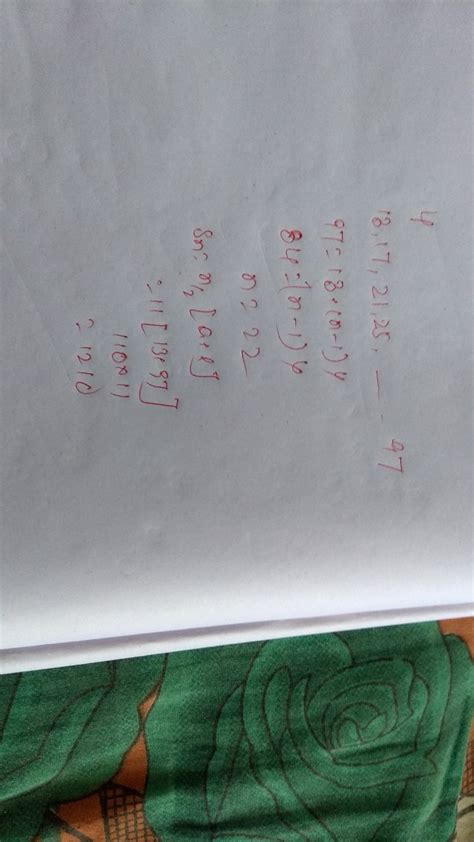 4
13, 17, 21, 25, — - - 97
97 = 13 + (n-1) 4
84 = (n-1) 4
n = 22
Sn = n/2 [a+l]
= 11 [13+97]
110×11
= 1210